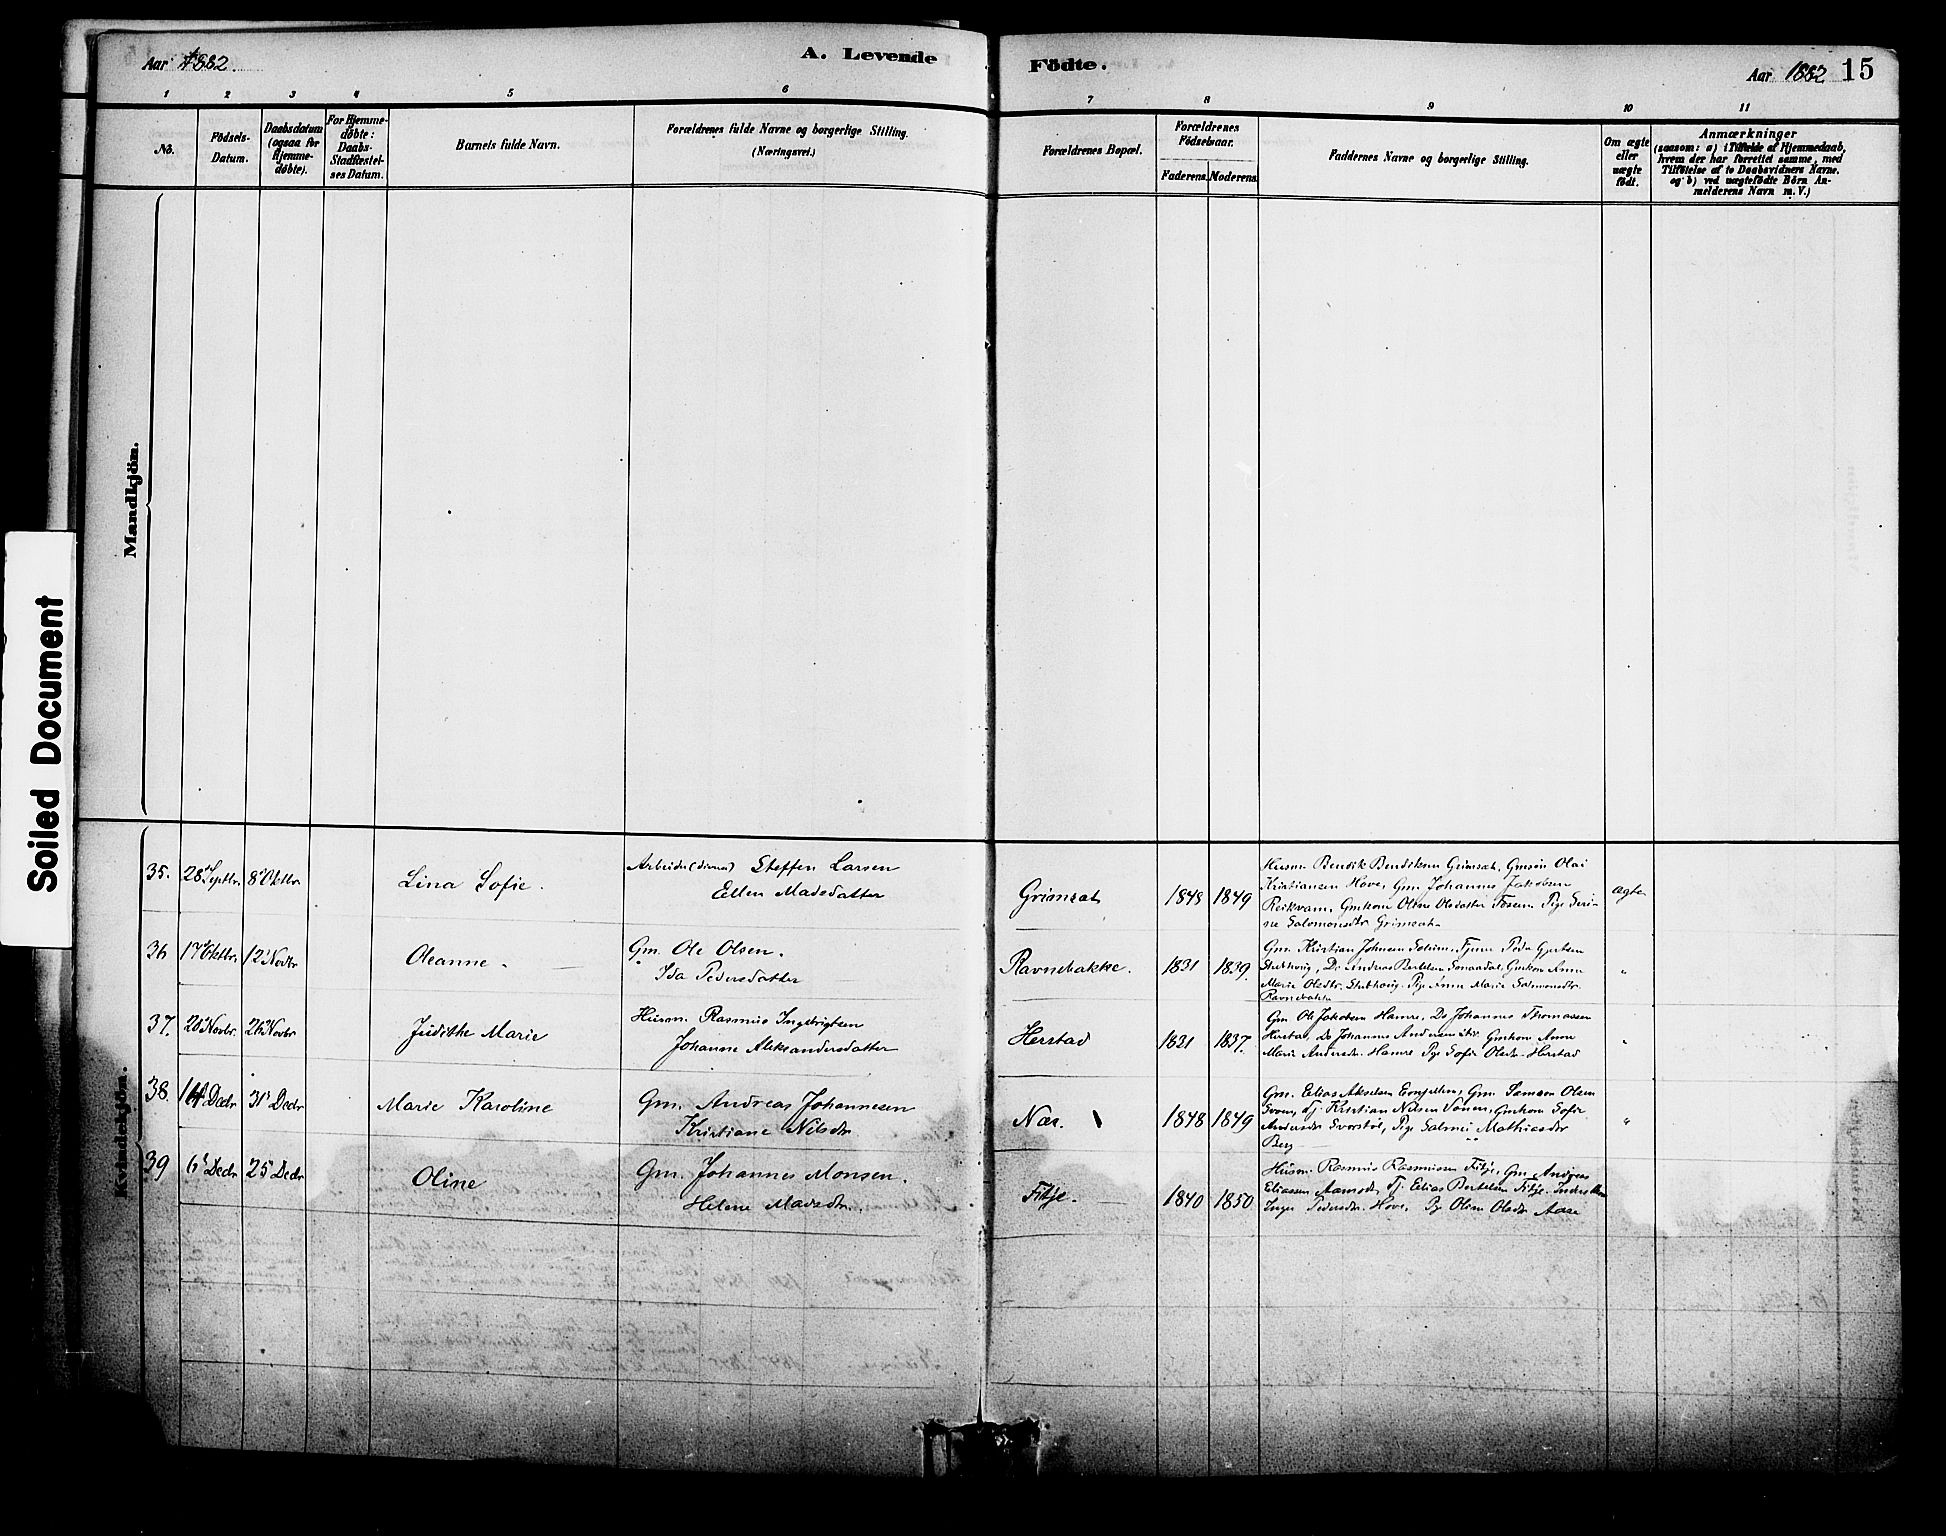 Aar 1882.
A. Levende
Födte.
Aar 1882
15
1 2 3 4 5 6 7 8 9 10 11
No.
Födsels-
Datum.
Daabsdatum
(ogsaa for
Hjemme-
döbte).
For Hjemme-
döbte:
Daabs-
Stadfæstel-
ses Datum.
Barnets fulde Navn.
Forældrenes fulde Navne og borgerlige Stilling.
(Næringsvei.)
Forældrenes Bopæl.
Forældrenes
Födselsaar.
Faderens. Moderens.
Faddernes Navne og borgerlige Stilling.
Om ægte
eller
uægte
födt.
Anmærkninger
(saasom: a) i Tilfælde af Hjemmedaab,
hvem der har forrettet samme, med
Tilföielse af to Daabsvidners Navne.
og b) ved uægtefödte Börn An-
melderens Navn m. V.)
Mandkjön.
Soiled Document
Kvindekjön.
35. 28 Septbr. 8 Oktbr
Lina Sofie.
Arbeider Steffen Larsen
Ellen Madsdatter
Grimsat 1848 1849
Husm. Bendik Bendiksen Grimsæt, Gmsön Olai
Kristiansen Hove, Gm. Johannes Jakobsen
Reikvam, Gmkone Oline Olsdatter Pige Seri-
ne Salomonsdtr Grimsat
ægte
36 17 Oktbr. 12 Novbr
Oleanne.
Gm. Ole Olsen.
Ida Pedersdatter
Ravnebakke. 1831 1839.
Gm. Kristian Johnsen
Do Andreas Bertelsen Gmkon Anne
Marie Olsdtr. Stubhoug. Pige Anne Marie Salmonsdtr.
Ravnebakke
"
37. 20 Novbr. 26 Novbr
Judithe Marie
Husm. Rasmus Ingebrigtsen
Johanne Aleksandersdatter
Herstad 1831 1837.
Gm Ole Jakobsen Hamre, Do Johannes Thomassen
Herstad, Do Johannes Andersen Gmkon Anne
Marie Andersdr. Hamre Pige Sofie Olsdr. Herstad
"
38. 14 Decbr 31 Decbr
Marie Karoline
Gm. Andreas Johannesen
Kristiane Nilsdr.
Nær. 1848 1849
Gm. Elias Gm. Samson Olsen
Kristian Nilsen Gmkon Sofie
Andersdr Pige Salmei Mathiasdr
Berg
"
39 6 Decbr 25 Decbr
Oline
Gm. Johannes Monsen.
Helene Madsdtr.
Fitje. 1840 1850
Husm. Rasmus Rasmussen Fitje, Gm Andreas
Eliassen Elias Bertelsen Fitje.
Inger Pedersdr. Hove, Pg. Oline Olsdr Aase